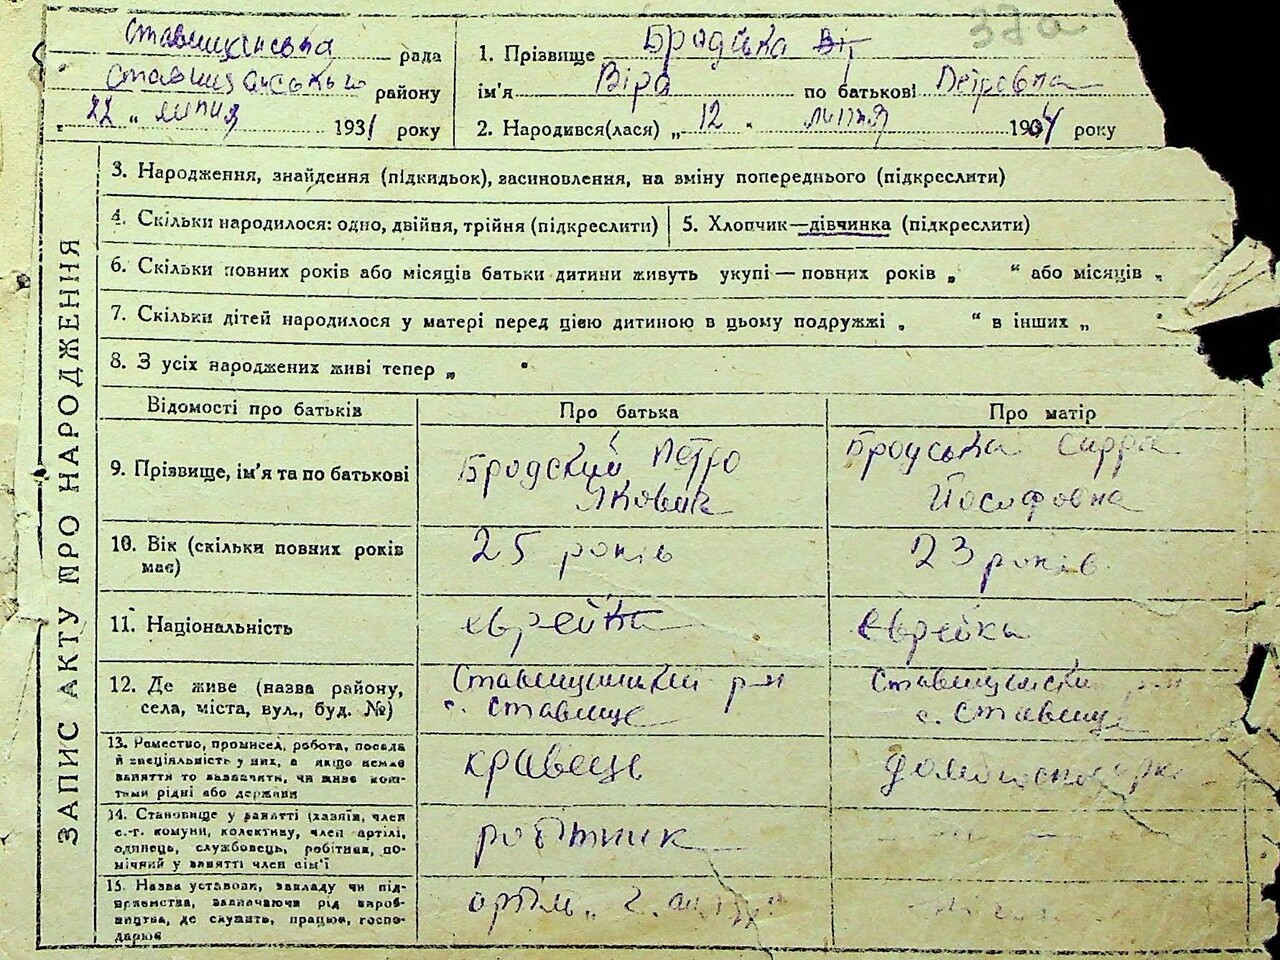 37а
Ставищанська рада
Ставищанського району
„ 22 „ липня 1931 року
1. Прізвище Бродська
ім'я Віра по батькові Петровна
2. Народився(лася) „ 12 " липня 1934 року
ЗАПИС АКТУ ПРО НАРОДЖЕННЯ
3. Народження, знайдення (підкидьок), засиновлення, на зміну попереднього (підкреслити)
4. Скільки народилося: одно, двійня, трійня (підкреслити)
5. Хлопчик—дівчинка (підкреслити)
6. Скільки повних років або місяців батьки дитини живуть укупі — повних років „ " або місяців „
7. Скільки дітей народилося у матері перед цією дитиною в цьому подружжі „ " в інших „ "
8. З усіх народжених живі тепер „ "
Відомості про батьків Про батька Про матір
9. Прізвище, ім'я та по батькові
Бродский Петро
Якович
Бродська Сарра
Йосифовна
10. Вік (скільки повних років
має)
25 років
23 років
11. Національність еврейка еврейка
12. Де живе (назва району,
села, міста, вул., буд. №)
Ставищиський р-н
с. Ставище
Ставищиський р-н
с. Ставище
13. Ремество, промисел, робота, посада
й спеціяльність у них, а якщо немає
заняття то зазначити, чи живе кош-
тами рідні або держави
кравець
домогосподарка
14. Становище у занятті (хазяїн, член
с.-г. комуни, колективу, член артілі,
одинець, службовець, робітник, по-
мічний у занятті член сім'ї
робітник
15. Назва установи, закладу чи під-
приємства, зазначаючи рід вироб-
ництва, де служить, працює, госпо-
дарює
артіль